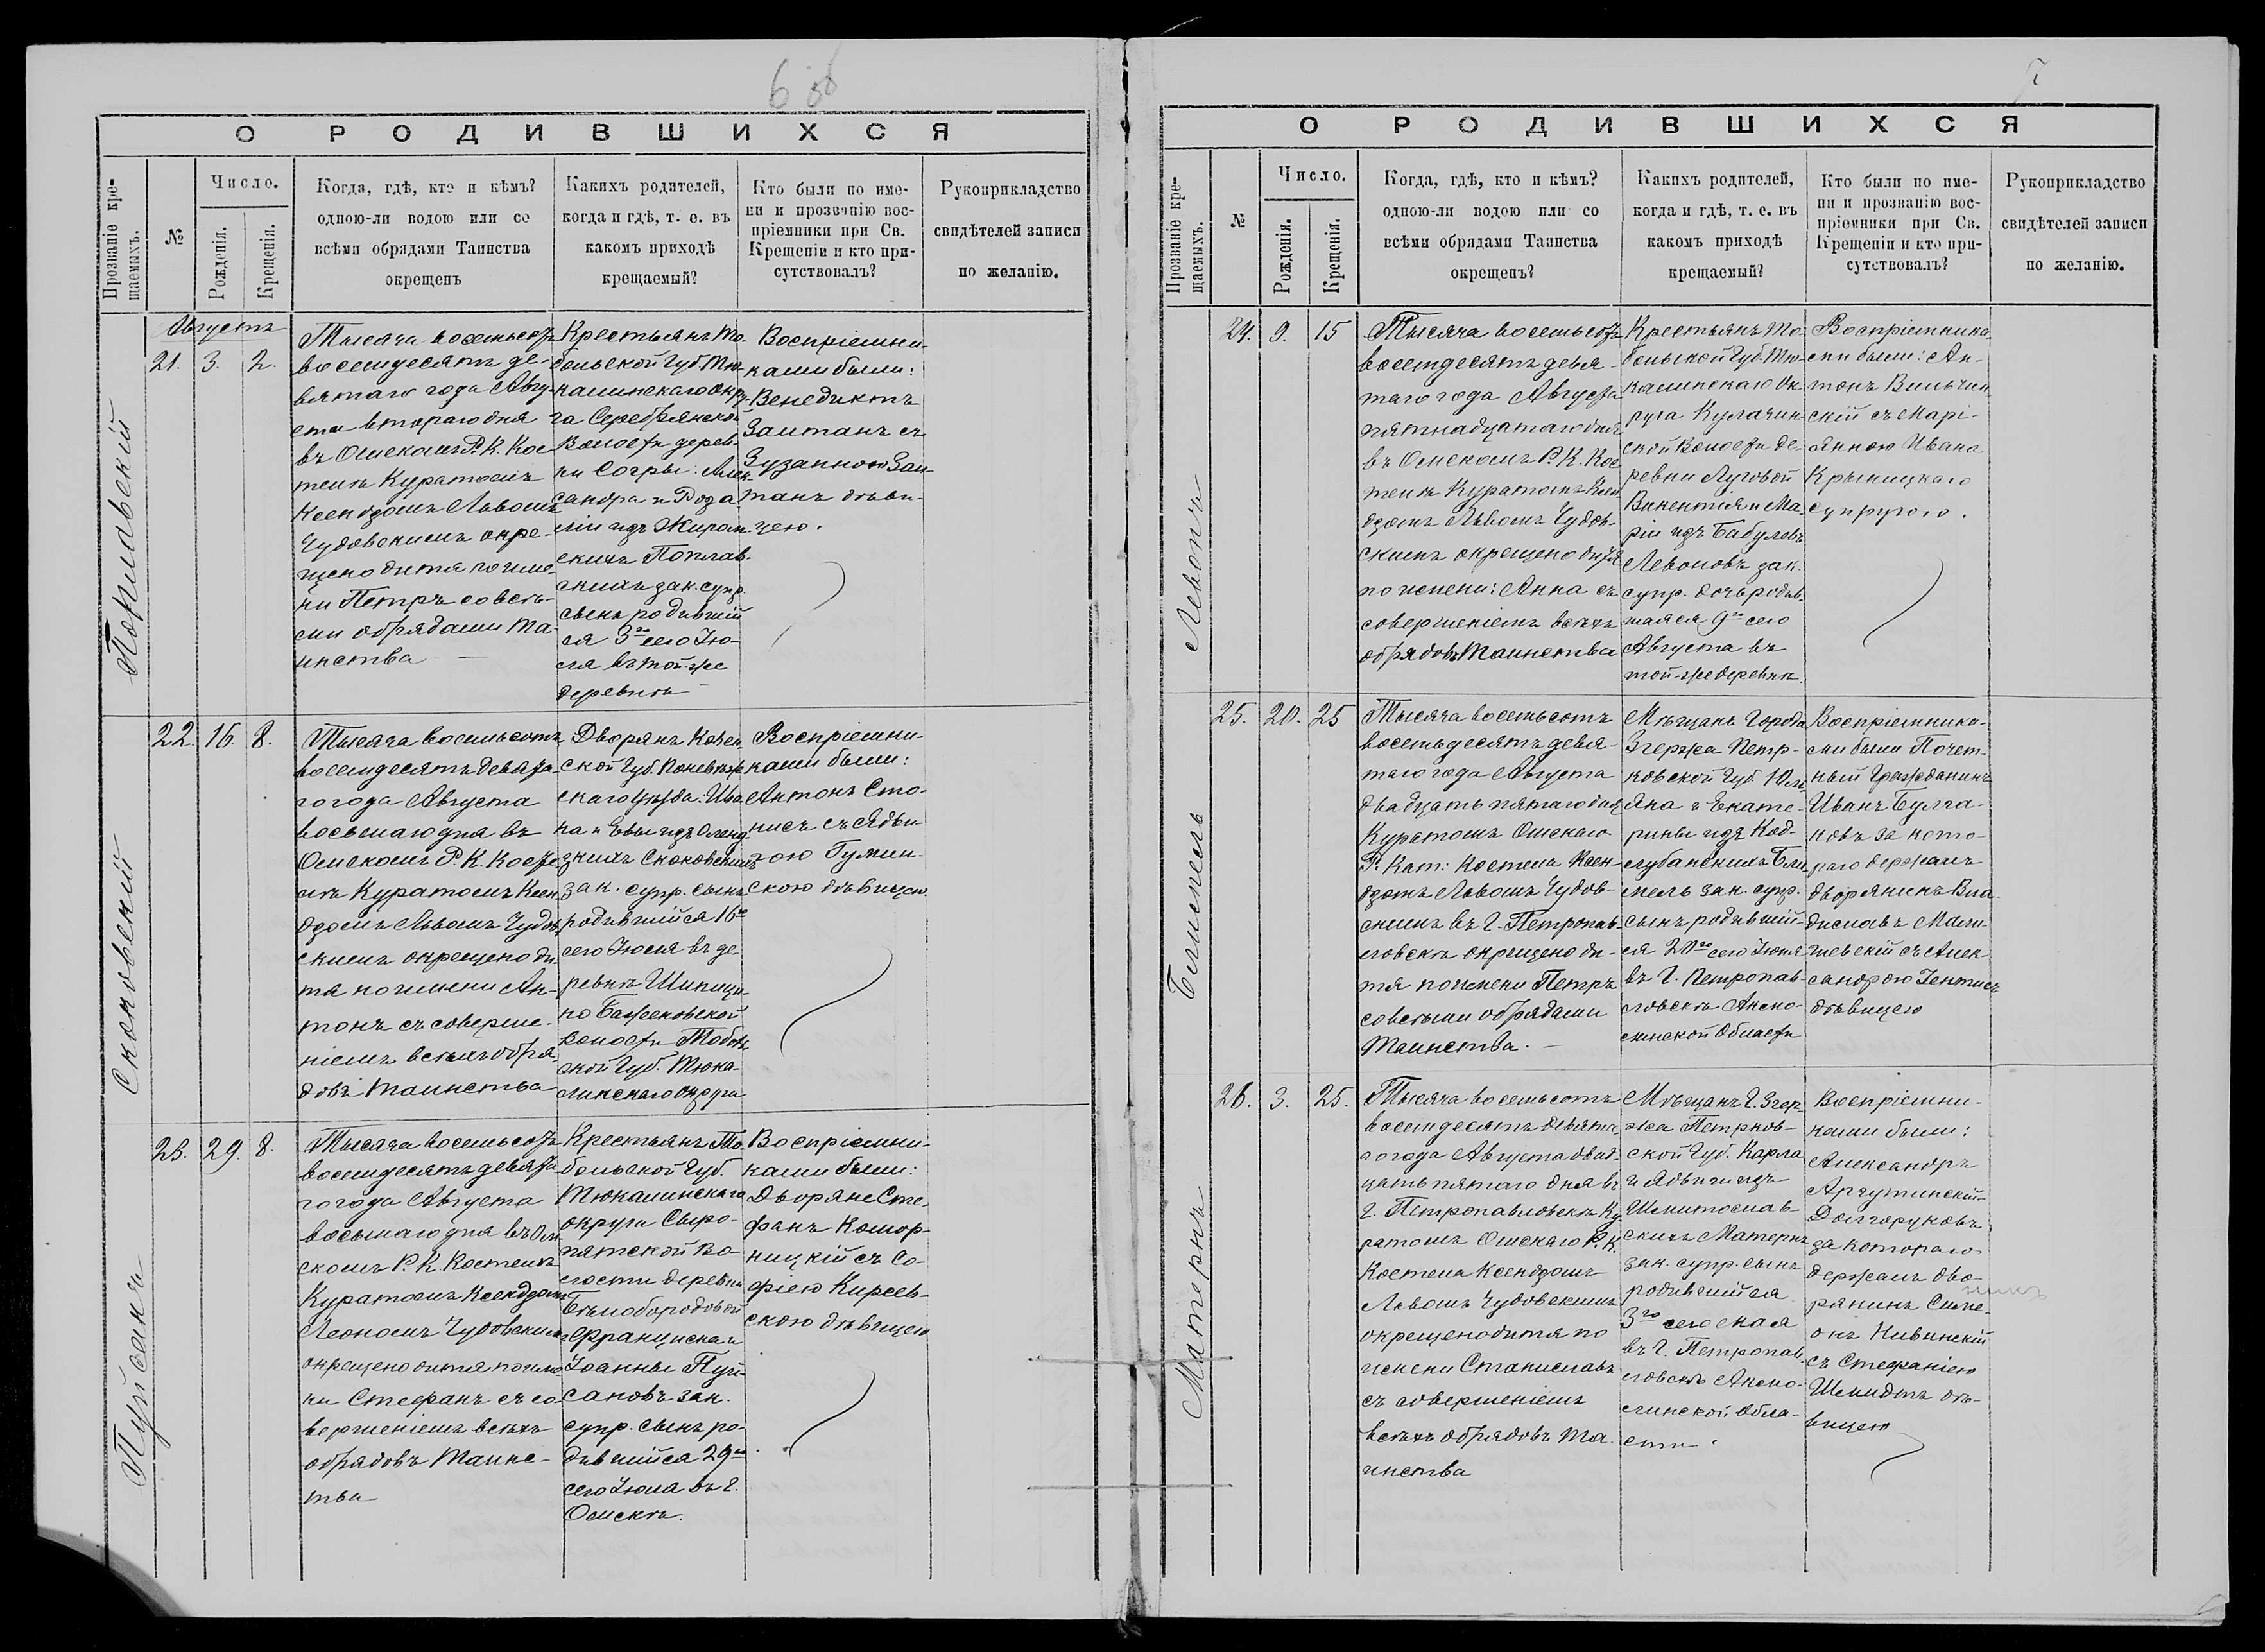 6 об
О РОДИВШИХСЯ
Прозваніе кре-
щаемыхъ.
№
Число.
Рожденія.
Крещенія.
Когда, гдѣ, кто и кѣмъ?
одною-ли водою или со
всѣми обрядами Таинства
окрещенъ
Какихъ родителей,
когда и гдѣ, т. е. въ
какомъ приходѣ
крещаемый?
Кто были по име-
ни и прозванію вос-
пріемники при Св.
Крещеніи и кто при-
сутствовалъ?
Рукоприкладство
свидѣтелей записи
по желанію.
Августъ
Поплавскій
21.
3.
2.
Тысяча восемьсотъ
восемдесятъ де-
вятаго года Авгу-
ста втораго дня
въ Омскомъ Р. К. Кос
телѣ Куратомъ
Ксендзомъ Львомъ
Чудовскимъ окре-
щено дитя по име-
ни Петръ со всѣ-
ми обрядами Та-
инства
Крестьянъ То-
больской Губ. Тю-
калинскаго окру-
га Серебрянской
Волости дерев-
ни Согры: Алек-
сандра и Роза
ліи изъ Жиром-
скихъ Поплав-
скихъ зак. супр.
сынъ родившій
ся 3го сего Ію-
ля въ той-же
деревнѣ
Воспріемни-
ками были:
Венедиктъ
Заштанъ съ
Зузанною Заш-
танъ дѣви-
цею.
Скоковскій
22.
16.
8.
Тысяча восемьсотъ
восемдесятъ девята-
го года Августа
восьмаго дня въ
Омскомъ Р. К. Косте
лѣ Куратомъ Ксен
дзомъ Львомъ Чудов
скимъ окрещено ди
тя по имени Ан-
тонъ съ соверше-
ніемъ всѣхъ обря
довъ Таинства
Дворянъ Ковен
ской Губ. Поневѣж
скаго Уѣзда: Ива
на и Евы изъ Оленд
зкихъ Скоковскихъ
зак. супр. сынъ
родившійся 16го
сего Іюля въ де-
ревнѣ Шипици-
но Баженовской
Волости Тоболь
ской Губ. Тюка-
линскаго Округа
Воспріемни-
ками были:
Антонъ Сто-
нисъ съ Ядви-
гою Гумин-
скою дѣвицею.
Пуйсанъ
23.
29.
8.
Тысяча восемьсотъ
восемдесятъ девята
го года Августа
восьмаго дня въ Ом-
скомъ Р. К. Костелѣ
Куратомъ Ксендзомъ
Леономъ Чудовскимъ
окрещено дитя по име
ни Стефанъ съ со
вершеніемъ всѣхъ
обрядовъ Таинс-
тва
Крестьянъ То-
больской Губ.
Тюкалинскаго
округа Сыро-
пятской Во-
лости деревни
Бѣлобородовой
Франциска и
Іоанны Пуй-
сановъ зак.
супр. сынъ ро-
дившійся 29го
сего Іюля въ г.
Омскѣ.
Воспріемни-
ками были:
Дворяне Сте-
фанъ Комор-
ницкій съ Со-
фіею Киреев-
скою дѣвицею
7
О РОДИВШИХСЯ
Прозваніе кре-
щаемыхъ.
№
Число.
Рожденія.
Крещенія.
Когда, гдѣ, кто и кѣмъ?
одною-ли водою или со
всѣми обрядами Таинства
окрещенъ?
Какихъ родителей,
когда и гдѣ, т. е. въ
какомъ приходѣ
крещаемый?
Кто были по име-
ни и прозванію вос-
пріемники при Св.
Крещеніи и кто при-
сутствовалъ?
Рукоприкладство
свидѣтелей записи
по желанію.
Левонъ
24.
9.
15
Тысяча восемьсотъ
восемдесятъ девя-
таго года Августа
пятнадцатаго дня
въ Омскомъ Р. К. Кос
телѣ Куратомъ Ксен
дзомъ Львомъ Чудов-
скимъ окрещено дитя
по имени: Анна съ
совершеніемъ всѣхъ
обрядовъ Таинства
Крестьянъ То-
больской Губ. Тю-
калинскаго Ок-
руга Кулачин-
ской Волости де-
ревни Луговой
Викентія и Ма
ріи изъ Бабулевъ
Левоновъ зак.
супр. дочь родив-
шаяся 9го сего
Августа въ
той-же деревнѣ.
Воспріемника-
ми были: Ан-
тонъ Вильчин
скій съ Марі-
анною Ивана
Крыницкаго
супругою.
Бемпель
25.
20.
25
Тысяча восемьсотъ
восемьдесятъ девя-
таго года Августа
двадцать пятаго дня
Куратомъ Омскаго
Р. Кат: Костела Ксен-
дзомъ Львомъ Чудов-
скимъ въ г. Петропав-
ловскѣ окрещено ди-
тя по имени Петръ
со всѣми обрядами
Таинства.
Мѣщанъ города
Згержа Петр-
ковской Губ. Юлі-
яна и Екате-
рины изъ Код-
лубанскихъ Бем
пель зак. супр.
сынъ родившій-
ся 20го сего Іюня
въ г. Петропав-
ловскѣ Акмо-
линской Области
Воспріемнико-
ми были Почет-
ный Гражданинъ
Иванъ Булга-
ковъ за кото-
раго держалъ
дворянинъ Вла
диславъ Мали-
шевскій съ Алек-
сандрою Гентисъ
дѣвицею
Матернъ
26.
3.
25.
Тысяча восемьсотъ
восемдесятъ девята
го года Августа двад-
цать пятаго дня въ
г. Петропавловскѣ Ку
ратомъ Омскаго Р. К.
Костела Ксендзомъ
Львомъ Чудовскимъ
окрещено дитя по
имени Станиславъ
съ совершеніемъ
всѣхъ обрядовъ Та-
инства
Мѣщанъ г. Згер-
жа Петрков-
ской Губ. Карла
и Ядвиги изъ
Шмитослав-
скихъ Матернъ
зак. супр. сынъ
родившійся
3го сего Мая
въ г. Петропав-
ловскѣ Акмо-
линской Обла-
сти.
Воспріемни-
ками были:
Александръ
Аргутинскій-
Долгоруковъ
за котораго
держалъ дво-
рянинъ Симе-
онъ Нивинскій
съ Стефаніею
Шмидтъ дѣ-
вицею